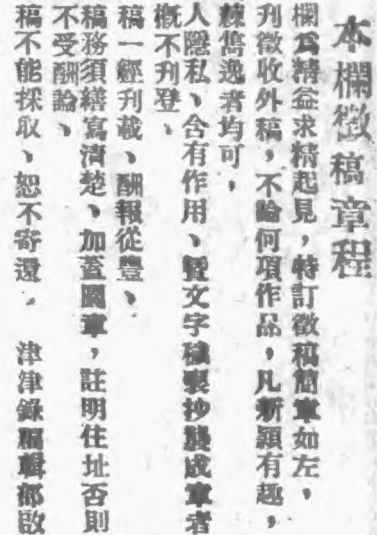 本欄徵稿章程
欄爲精益求精起見，特訂徵稿簡章如左，
刋徵收外稿，不論何項作品，凡新穎有趣，
雋逸者均可，
人隱私、含有作用、曁文字穢褻抄襲成章者
槪不刋登、
稿一經刋載、酬報從豐、
稿務須繕寫淸楚、加蓋圖章，註明住址否則
不受酬論、
稿不能採取、恕不寄還、津津錄編輯部啟